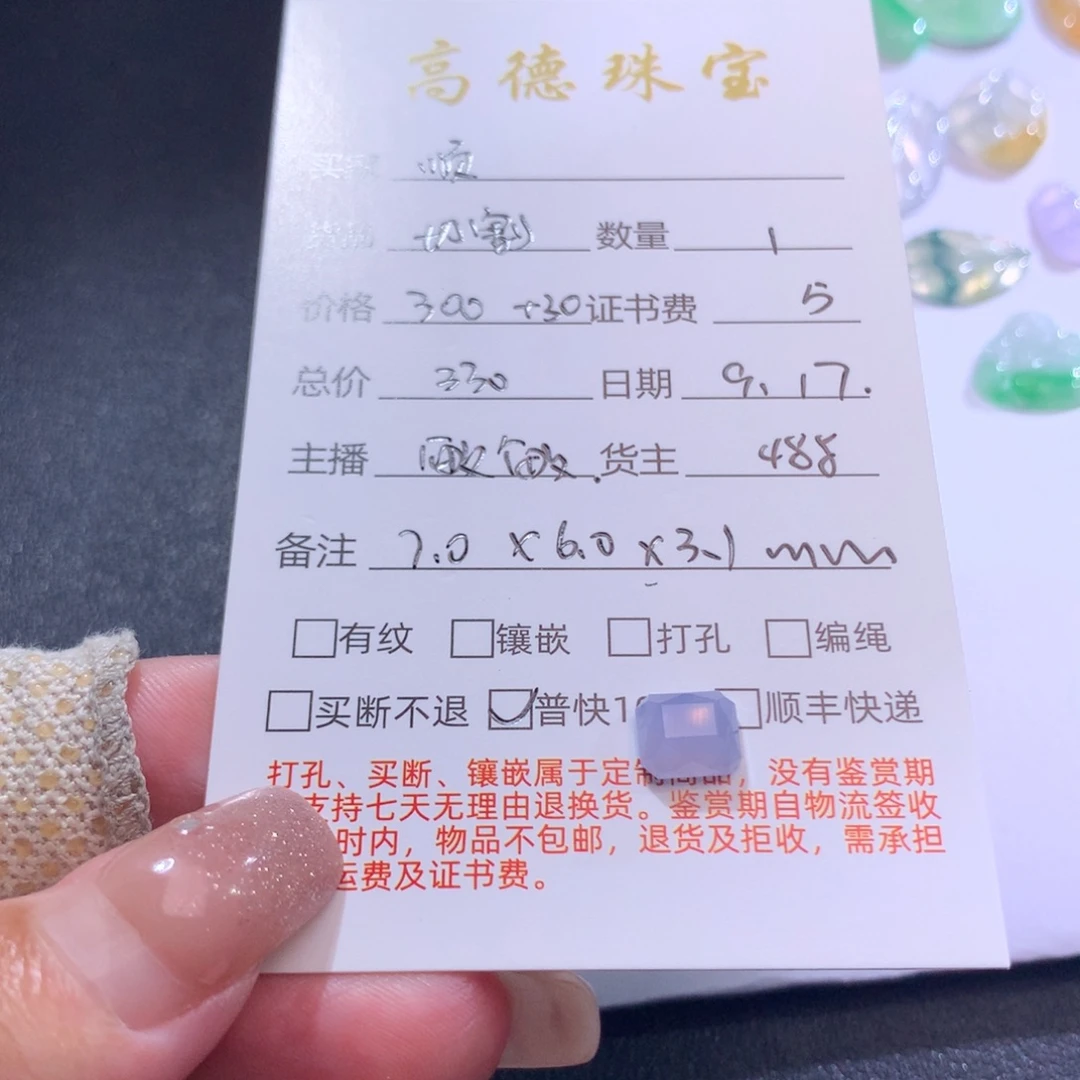 高德珠宝
顺
切割 数量 1
价格 300 +30 证书费 5
总价 330 日期 9.17.
主播 货主 488
备注 7.0 x 6.0 x 3.1 mm
□有纹 □镶嵌 □打孔 □编绳
□买断不退 ☑普快1 □顺丰快递
打孔、买断、镶嵌属于定制商品，没有鉴赏期
支持七天无理由退换货。鉴赏期自物流签收
时内，物品不包邮，退货及拒收，需承担
运费及证书费。